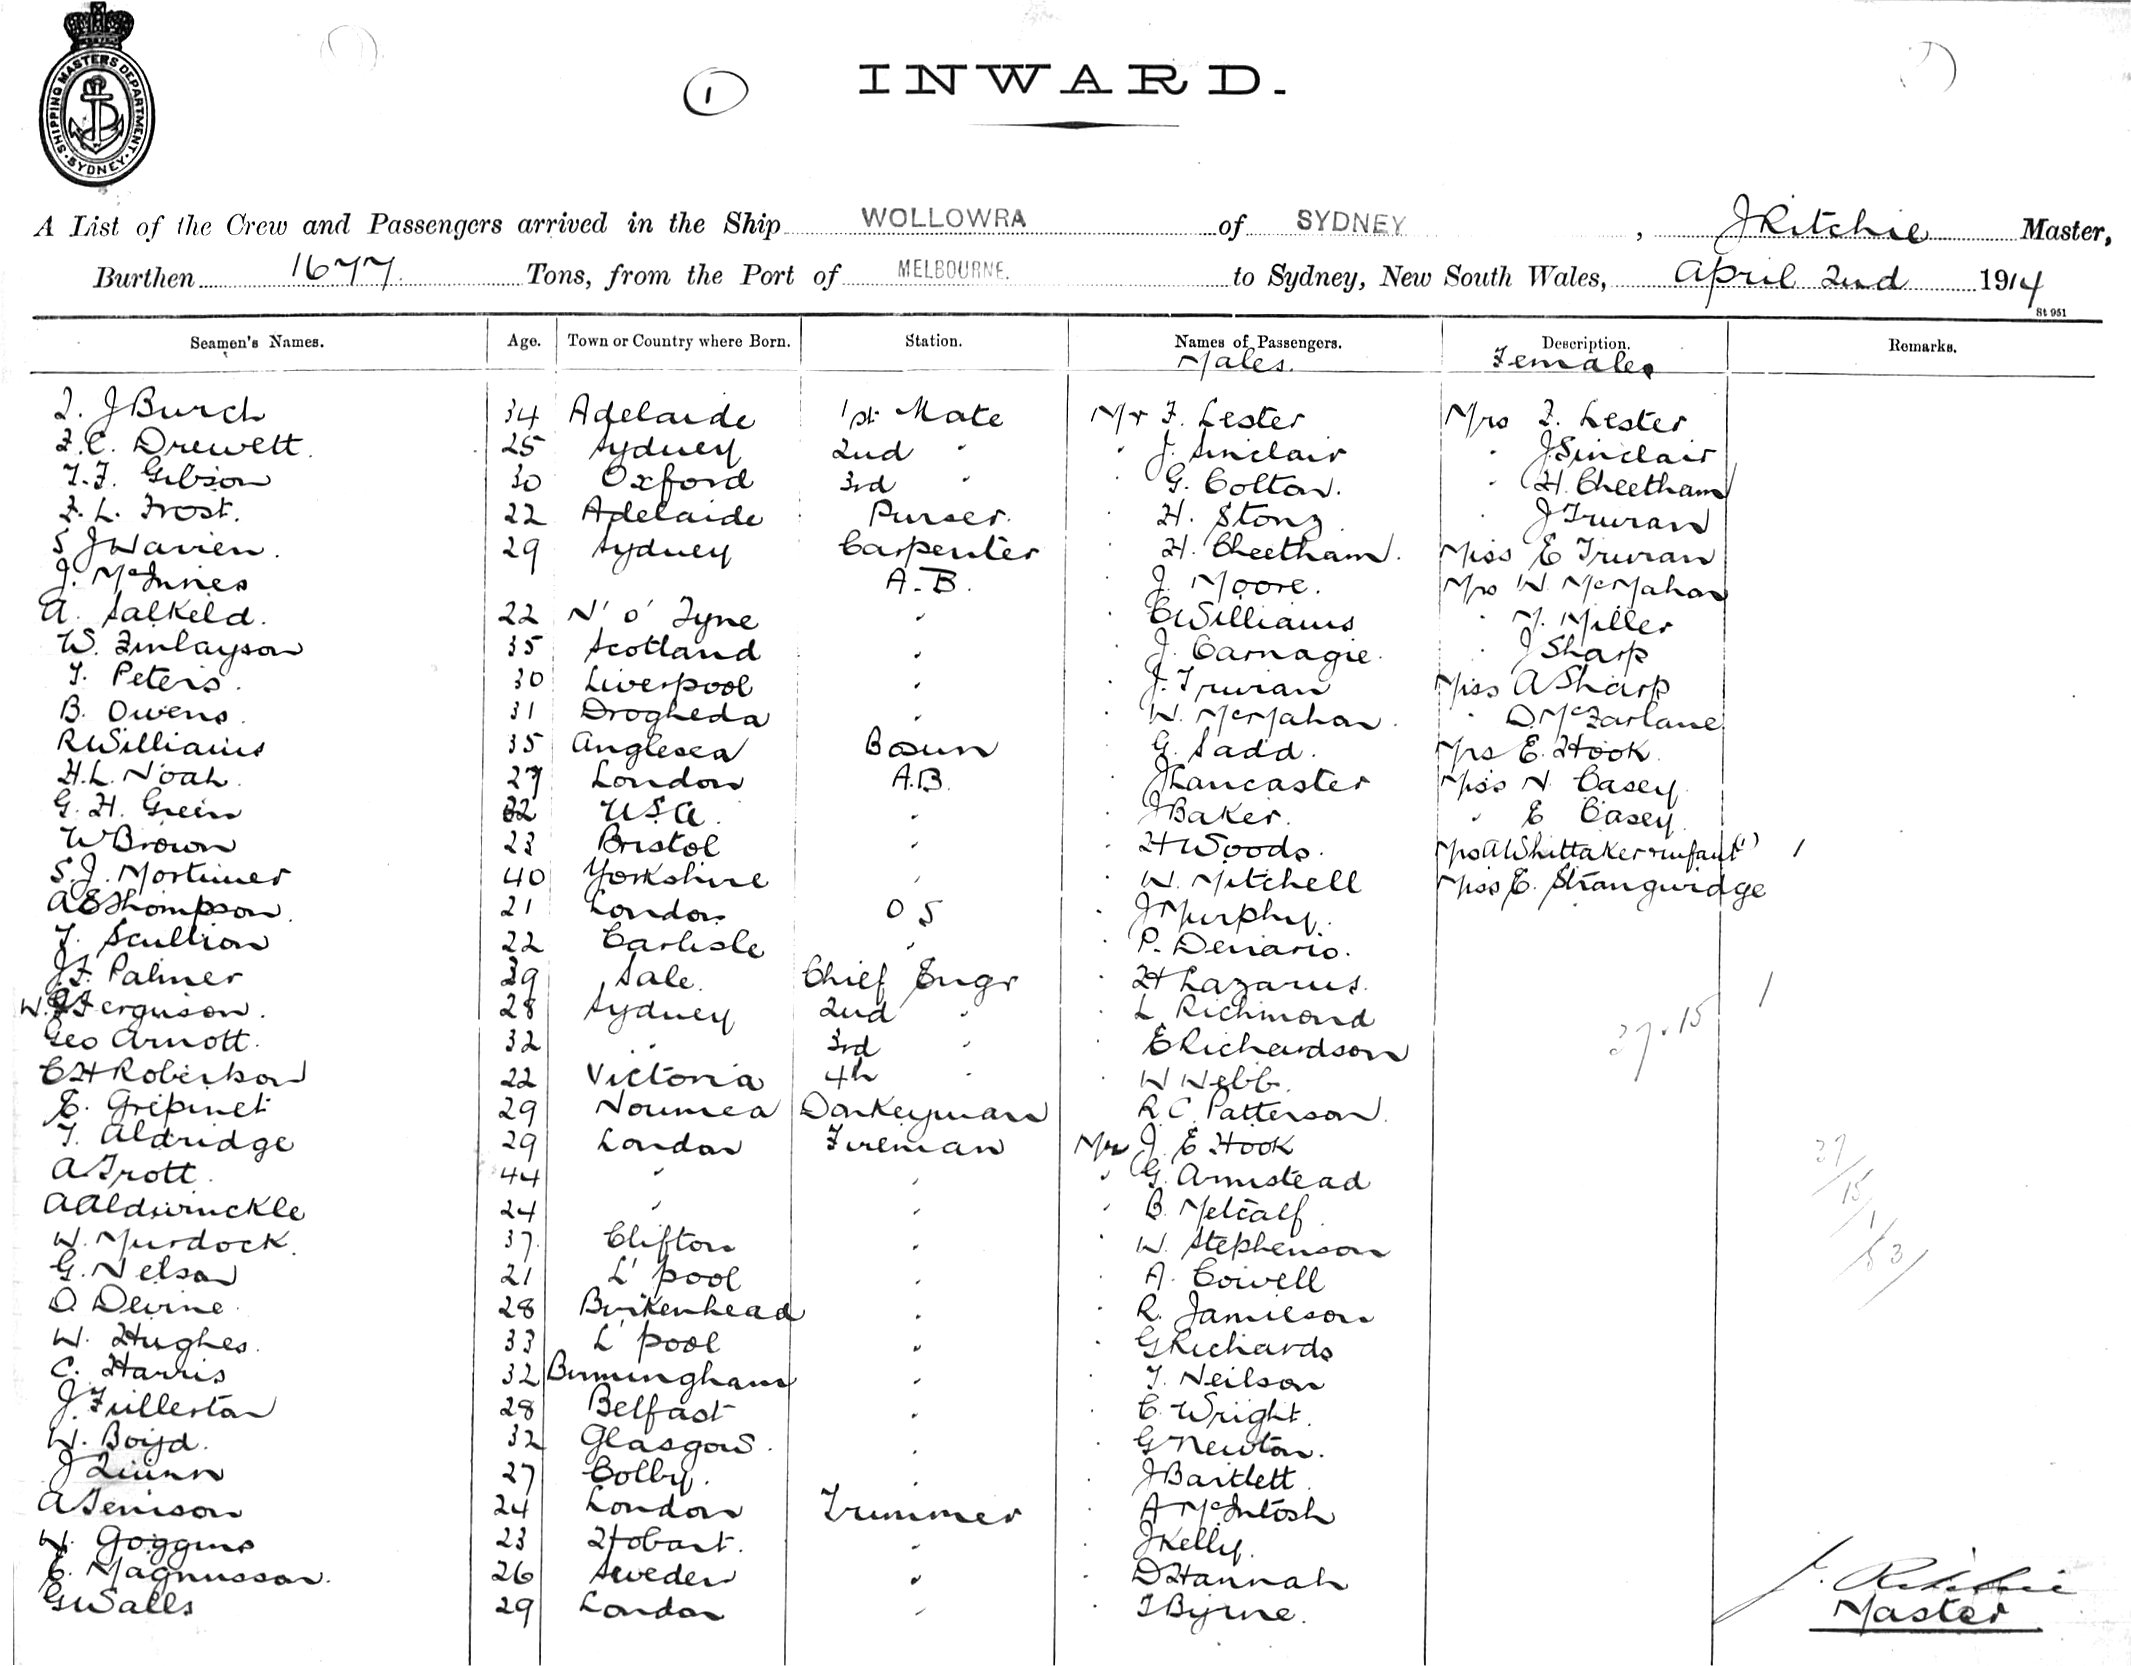 SHIPPING MASTERS DEPARTMENT
SYDNEY
1
INWARD.
A List of the Crew and Passengers arrived in the Ship WOLLOWRA of SYDNEY, J Ritchie Master,
Burthen 1677 Tons, from the Port of MELBOURNE. to Sydney, New South Wales, April 2nd 1914
St 951
Seamen's Names. Age. Town or Country where Born. Station. Names of Passengers. Description. Remarks.
Males. Females
J Burch 34 Adelaide 1st Mate Mr F. Lester Mrs F. Lester
F.C. Drewett. 25 Sydney 2nd " " J. Sinclair " J Sinclair
T.F. Gibson 30 Oxford 3rd " " G. Colton. " H. Cheetham
F. L. Frost. 22 Adelaide Purser. " H. Stong. " J Truran
S J Warren. 29 Sydney Carpenter " H. Cheetham. Miss E Truran
J. McInnes A.B. " J. Moore. Mrs W. McMahon
A. Salkeld. 22 N' o' Tyne " " C Williams " M. Miller
W. Finlayson 35 Scotland " " J. Carnagie. " J Sharp
T. Peters. 30 Liverpool " " J. Truran Miss A Sharp
B. Owens. 31 Drogheda " " W. McMahon. " D. McFarlane
R Williams 35 Anglesea Bosun " G. Sadd. Mrs E. Hook.
H.L. Noah. 27 London A.B. " J Lancaster Miss N. Casey
G. H. Green 32 USA. " " J Baker. " E Casey
W Brown 23 Bristol " " H Woods. Mrs A Whittaker & infant (1) 1
S.J. Mortimer 40 Yorkshire " " W. Mitchell Miss E. Strangwidge
A E Thompson. 21 London O S " J Murphy.
T. Scullion 22 Carlisle " " P. Denario.
J.F. Palmer 39 Sale. Chief Engr " H Lazarus.
W. J Ferguson. 28 Sydney 2nd " " L Richmond 1
37.15
Geo Arnott. 32 " " 3rd " " E Richardson
C H Robertson 22 Victoria 4th " " W Webb.
E. Grepinet 29 Noumea Donkeyman " R. C. Patterson.
T. Aldridge 29 London Fireman Mr J. E Hook
A Trott. 44 " " " G. Armstead
37
A Aldwinckle 24 " " " B. Metcalf
15
W. Murdock. 37. Clifton " " W. Stephenson
1
53
G. Nelson 21 L'pool " " A. Cowell
D. Devine. 28 Birkenhead " " R. Jamieson
W. Hughes. 33 L'pool " " G Richards
C. Harris 32 Birmingham " " T. Neilson
J. Fullerton 28 Belfast " " C. Wright.
W. Boyd. 32 Glasgow. " " G Newton.
J Quinn 27 Colby. " " J Bartlett
A Tenison 24 London Trimmer " A McIntosh
W. Goggins 23 Hobart. " " J Kelly.
E. Magnusson. 26 Sweden " " D Hannah
G Walls 29 London " " T Byrne.
J. Ritchie
Master